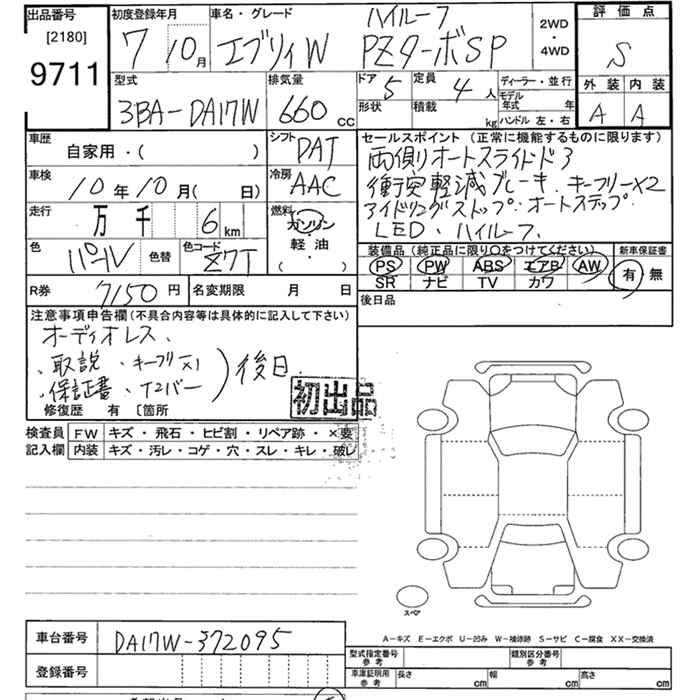 出品番号 初度登録年月 車名・グレード ハイルーフ 2WD・4WD 評価点
[2180] 7年 10月 エブリィW PZターボSP S
9711
型式 排気量 ドア 5 定員 4人 ディーラー・並行 外装 内装
3BA-DA17W 660cc 形状 積載 kg モデル年式 年 ハンドル 左・右 A A
車歴 シフト セールスポイント (正常に機能するものに限ります)
自家用・( ) DAT 両側オートスライドドア
車検 冷房 衝突軽減ブレーキ. キーフリー×2
10年10月( 日) AAC アイドリングストップ. オートステップ.
走行 燃料 LED. ハイルーフ.
万 千 6km ガソリン・軽油・( )
色 パール 色替 色コード Z7T
装備品 (純正品に限り○をつけてください) 新車保証書
PS PW ABS エアB AW 有 無
SR ナビ TV カワ
R券 7150円 名変期限 月 日 後日品
注意事項申告欄(不具合内容等は具体的に記入して下さい)
オーディオレス、
、取説 ・キーフリ×1
、保証書 ・T2バー ) 後日.
修復歴 有 [箇所 初出品
検査員 FW キズ・飛石・ヒビ割・リペア跡・×要
記入欄 内装 キズ・汚レ・コゲ・穴・スレ・キレ・破レ
スペア
A-キズ E-エクボ U-凹み W-補修跡 S-サビ C-腐食 XX-交換済
車台番号 DA17W-372095
型式指定番号 参考 類別区分番号 参考
登録番号 車庫証明用 参考 長さ cm 幅 cm 高さ cm